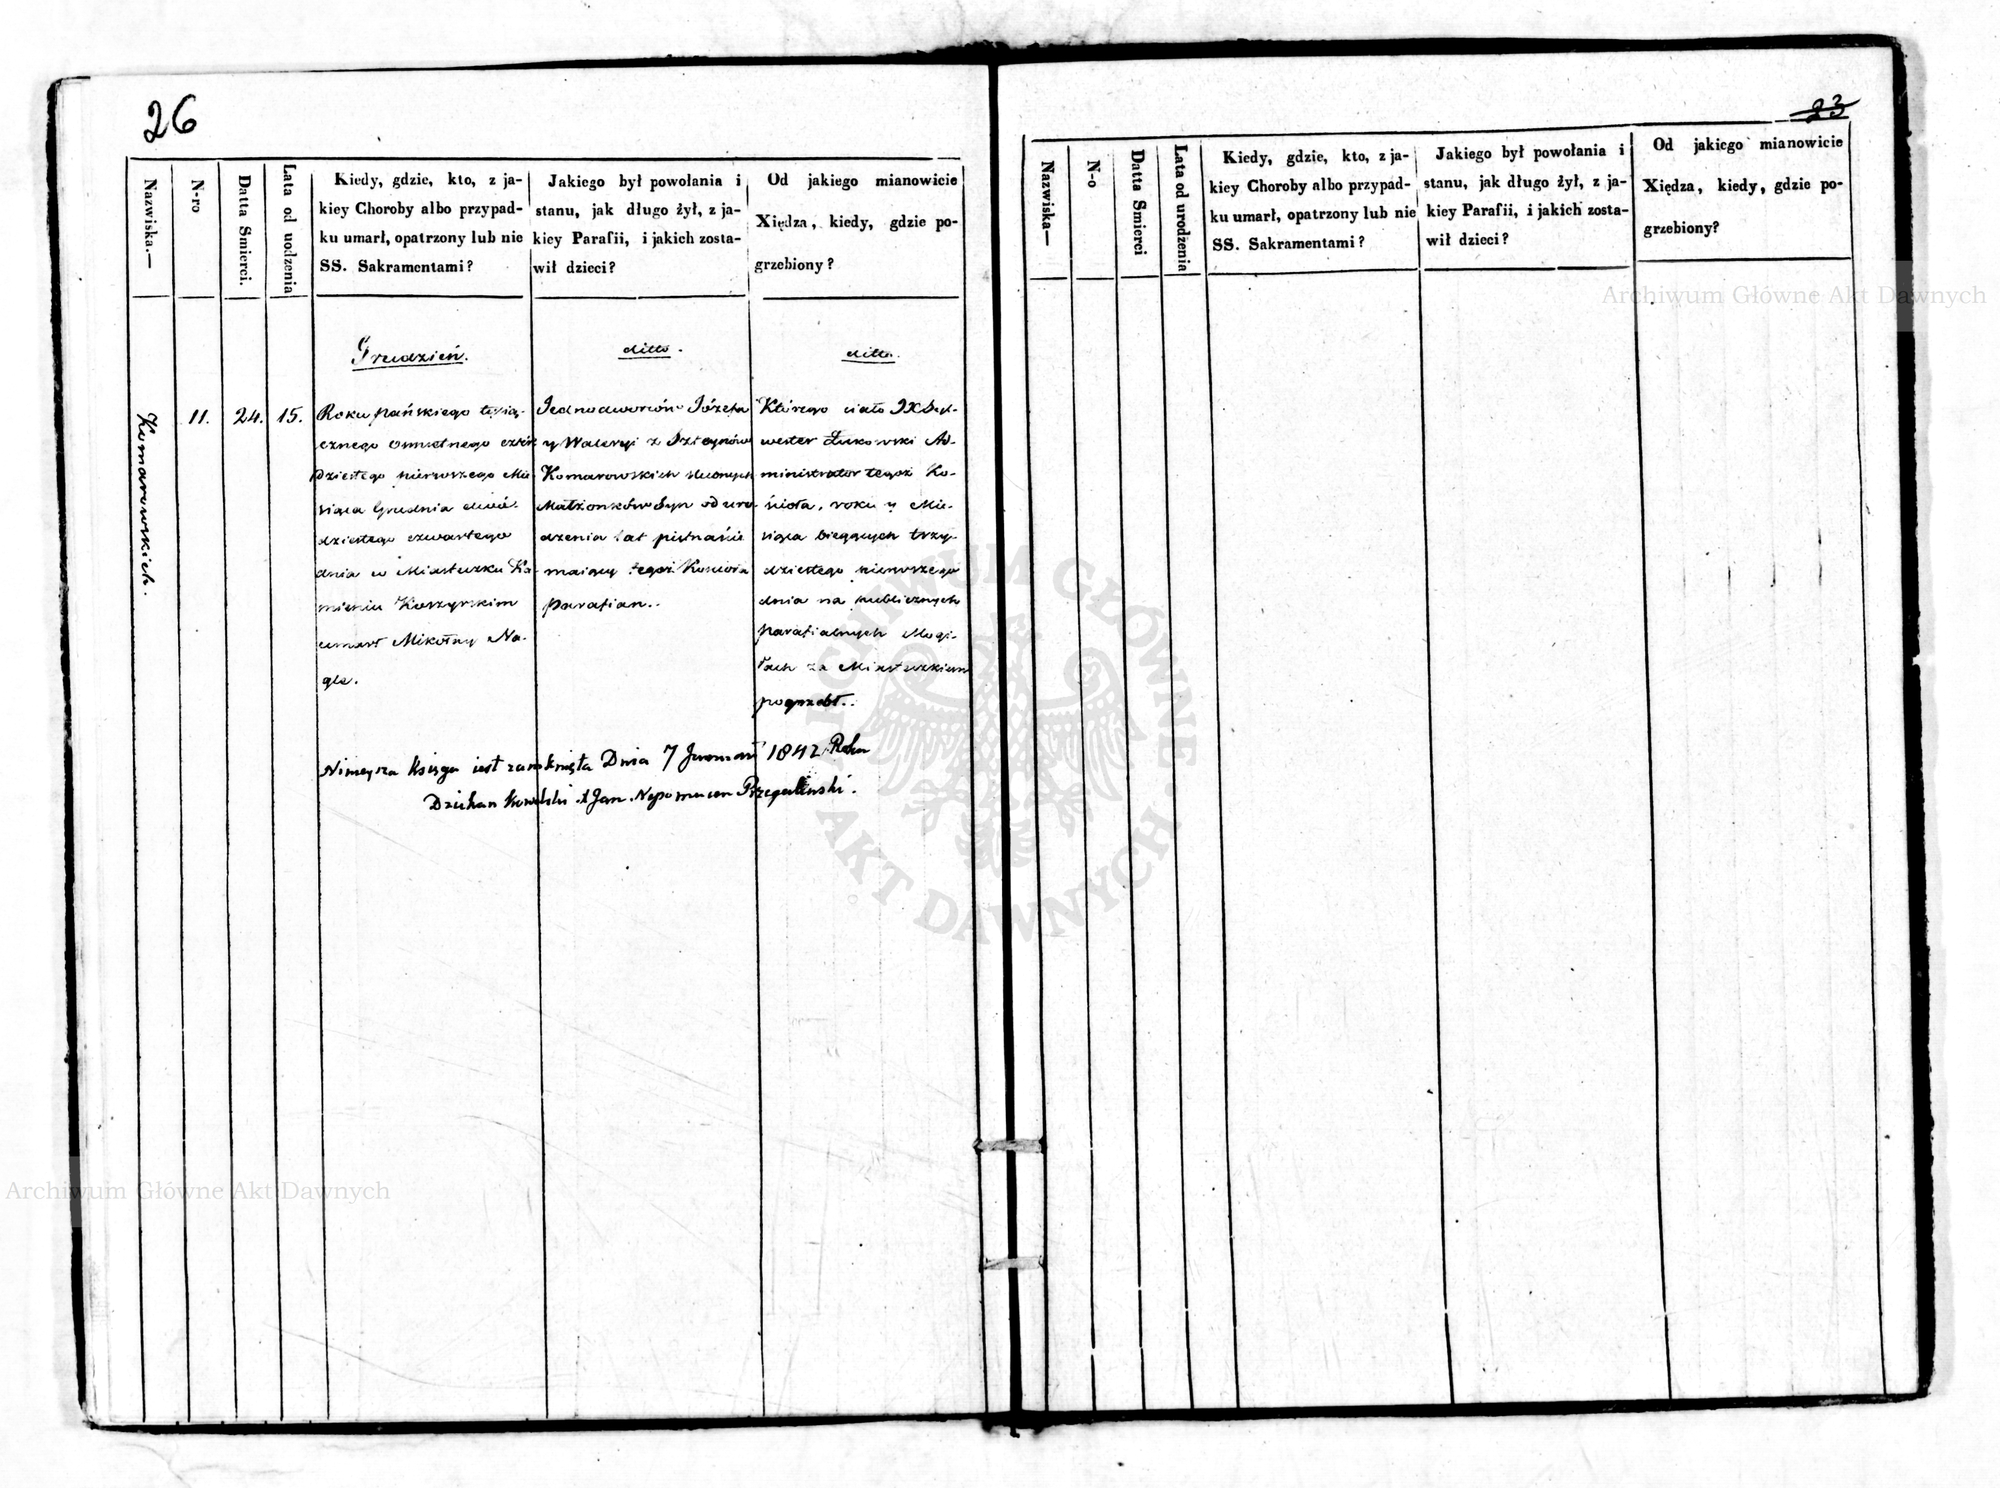 26
Nazwiska.—
N-ro
Datta Smierci.
Lata od uodzenia
Kiedy, gdzie, kto, z ja-
kiey Choroby albo przypad-
ku umarł, opatrzony lub nie
SS. Sakramentami?
Jakiego był powołania i
stanu, jak długo żył, z ja-
kiey Parafii, i jakich zosta-
wił dzieci?
Od jakiego mianowicie
Xiędza, kiedy, gdzie po-
grzebiony?
Komarowskich.
11.
24.
15.
Grudzień.
Roku pańskiego tysią-
cznego osmsetnego czter
dziestego pierwszego Mie
siąca Grudnia dwó-
dziestego czwartego
dnia w Miasteczku Ka-
mieniu Koszyrskim
umarł Mikołay Na-
gle.
ditto.
Jednodworców Józefa
y Waleryi z
Komarowskich slubnych
Małżonków Syn od uro-
dzenia lat pietnaście
maiący tegoż Kościoła
parafian..
ditto.
Którego ciało JX Syl-
wester Żukowski Ad-
ministrator tegoż Ko-
ścioła, roku y Mie-
siąca bieżących trzy-
dziestego pierwszego
dnia na publicznych
parafialnych Mogi-
łach za Miasteczkiem
pogrzebł..
Ninieysza Księga iest zamknięta Dnia 7 1842 Roku
Dziekan Kowelski X Jan Nepomucen Przegaliński.
23
Nazwiska—
N-o
Datta Smierci
Lata od urodzenia
Kiedy, gdzie, kto, z ja-
kiey Choroby albo przypad-
ku umarł, opatrzony lub nie
SS. Sakramentami?
Jakiego był powołania i
stanu, jak długo żył, z ja-
kiey Parafii, i jakich zosta-
wił dzieci?
Od jakiego mianowicie
Xiędza, kiedy, gdzie po-
grzebiony?
Archiwum Główne Akt Dawnych
ARCHIWUM GŁÓWNE AKT DAWNYCH
Archiwum Główne Akt Dawnych